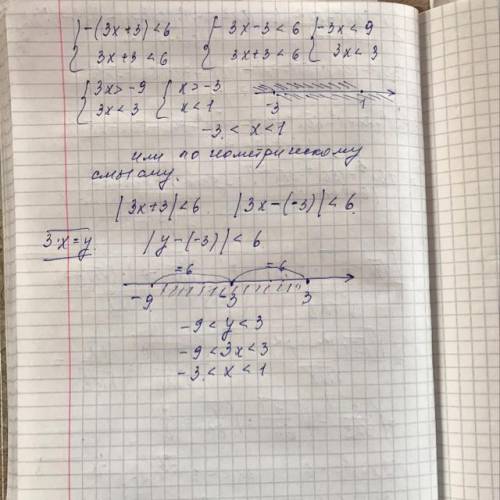 { -(3x+3)<6 { -3x-3<6 { -3x<9
3x+3<6 3x+3<6 3x<3
{ 3x>-9 { x>-3
3x<3 x<1 -3 1
-3<x<1
или по геометрическому
смыслу.
|3x+3|<6 |3x-(-3)|<6
3·x=y |y-(-3)|<6
=6 =6
-9 -3 3
-9<y<3
-9<3x<3
-3<x<1